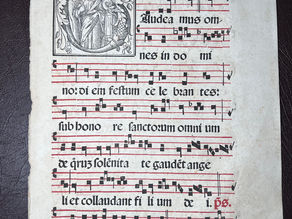 Audea mus om
nes in do mi
no: di em festum ce le bran tes:
sub hono re sanctorum omni um
de quibus solēnita te gaudēt ange
li et collaudant fi li um de i. ps.